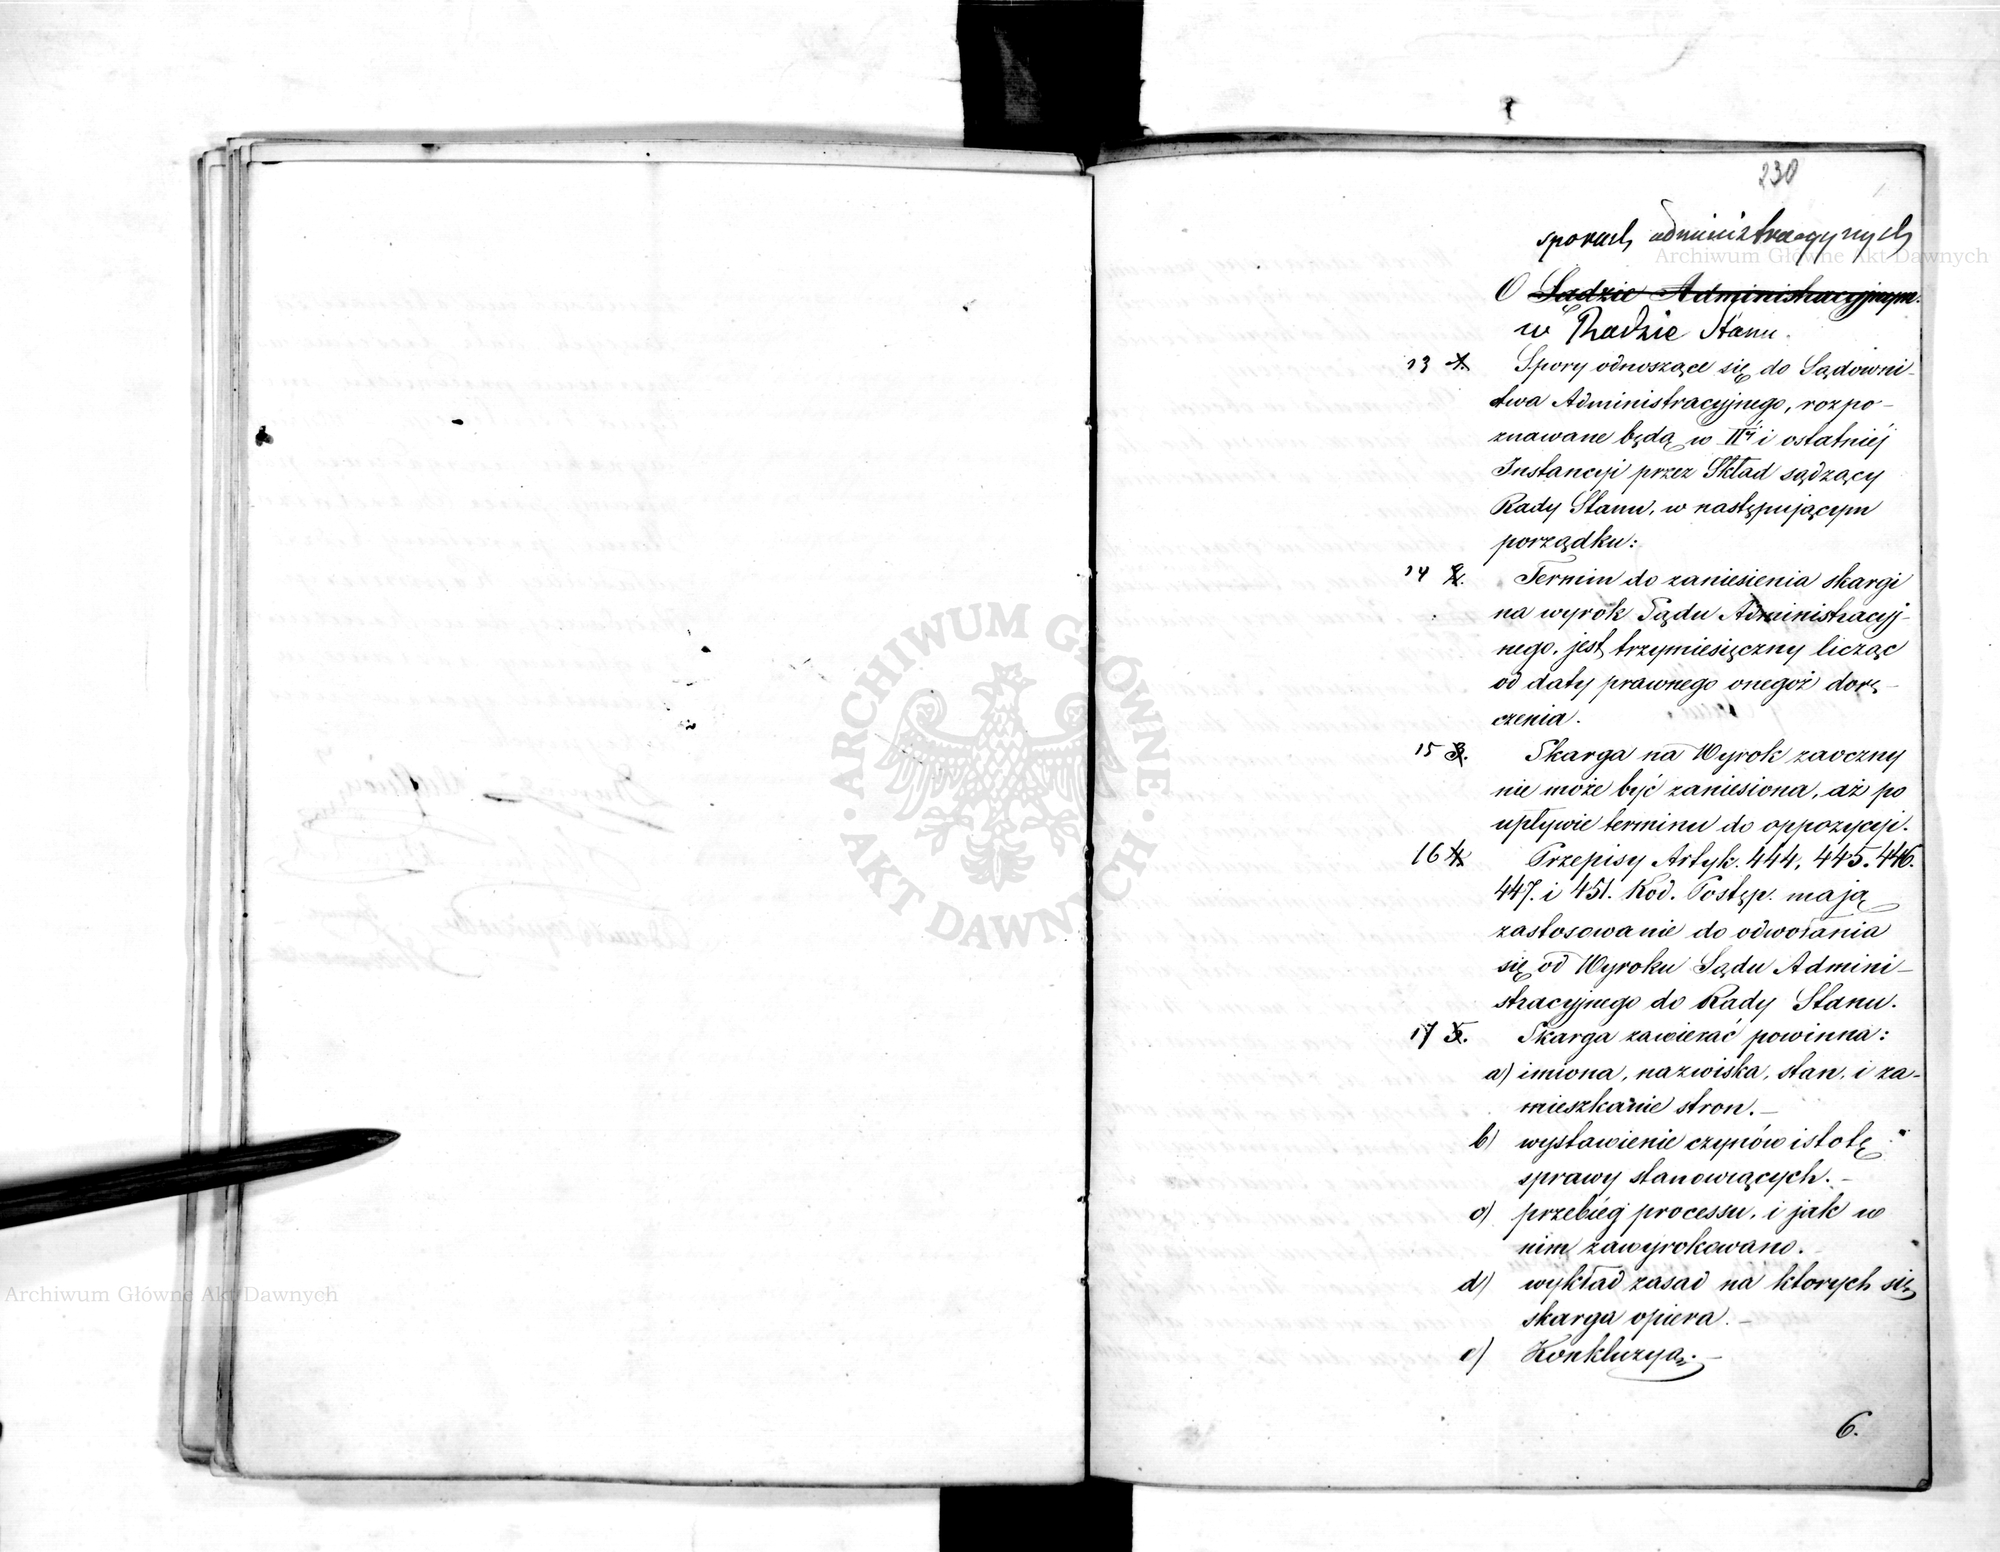 230
sporach administracyjnych
O Sądzie Administracyjnym.
w Radzie Stanu.
13 1. Spory odnoszące się do Sądowni-
ctwa Administracyjnego, rozpo-
znawane będą w IIéj i ostatniéj
Instancyi przez Skład sądzący
Rady Stanu, w następującym
porządku:
14 2. Termin do zaniesienia skargi
na wyrok Sądu Administracyj-
nego, jest trzymiesięczny licząc
od daty prawnego onegoż dorę-
czenia.
15 3. Skarga na Wyrok zaoczny
nie może być zaniesiona, aż po
upływie terminu do oppozycyi.
16 4. Przepisy Artyk. 444, 445. 446.
447. i 451. Kod. Postęp. mają
zastosowanie do odwołania
się od Wyroku Sądu Admini-
stracyjnego do Rady Stanu.
17 5. Skarga zawierać powinna:
a) imiona, nazwiska, stan, i za-
mieszkanie stron.-
b) wystawienie czynów istotę
sprawy stanowiących.-
c) przebiég processu, i jak w
nim zawyrokowano.
d) wykład zasad na ktorych się
skarga opiera.-
e) Konkluzya.-
6.
ARCHIWUM GŁÓWNE
AKT DAWNYCH
Archiwum Główne Akt Dawnych
Archiwum Główne Akt Dawnych